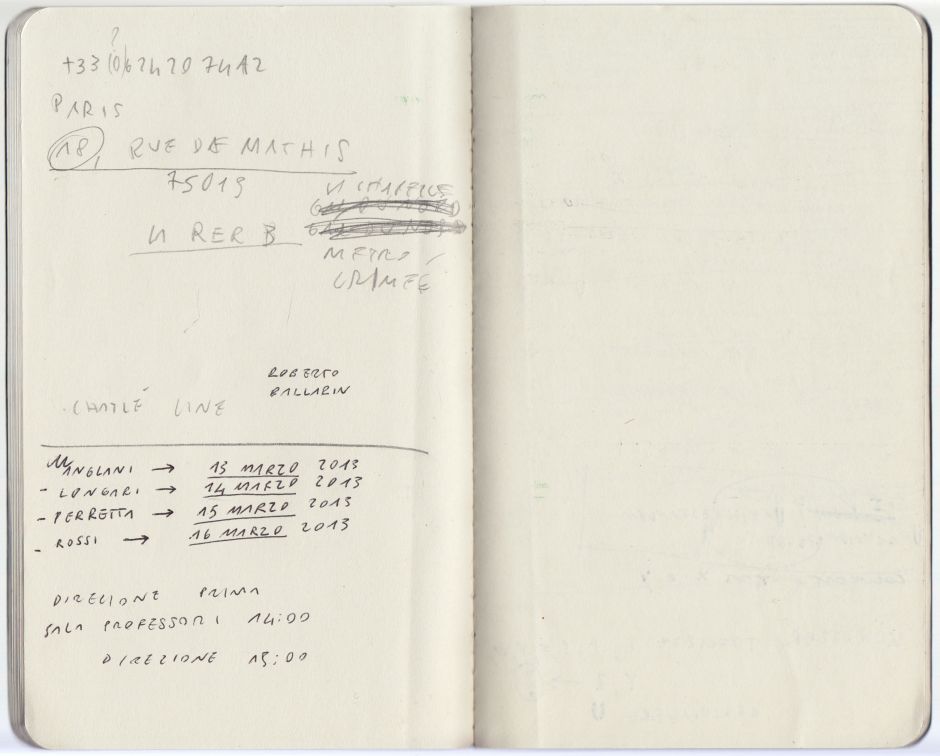 ?
+33 (0)6 24 20 74 12
PARIS
18, RUE DE MATHIS
75019
LA CHAPELLE
LA RER B
METRO
CRIMÉE
ROBERTO
BALLARIN
CHATLÉ LINE
MANGLANI → 13 MARZO 2013
- LONGARI → 14 MARZO 2013
- PERRETTA → 15 MARZO 2013
- ROSSI → 16 MARZO 2013
DIREZIONE PRIMA
SALA PROFESSORI 14:00
DIREZIONE 15:00